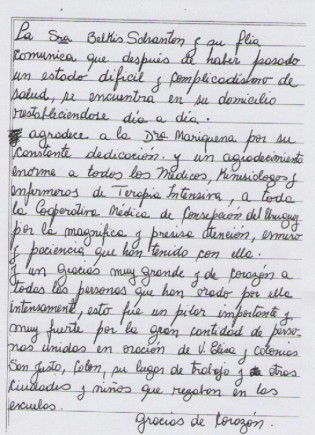 La Sra Belkis Schanton y su flia
comunica que después de haber pasado
un estado dificil y complicadisimo de
salud, se encuentra en su domicilio
restableciendose dia a dia.
agradece a la Dra Mariquena por su
constante dedicación. y un agradecimiento
enorme a todos los Médicos, Kinesiologos y
enfermeros de Terapia Intensiva, a toda
la Cooperativa Médica de Consepción del Uruguay
por la magnifica y precisa atención, esmero
y paciencia que han tenido con ella.
y un gracias muy grande y de corazón a
todas las personas que han orado por ella
intensamente, esto fue un pilar importante y
muy fuerte por la gran cantidad de perso-
nas unidas en oración de V. Elisa y colonias
San Justo, Colon, su lugar de trabajo y otras
ciudades y niños que rezaban en las
escuelas.
Gracias de Corazón.